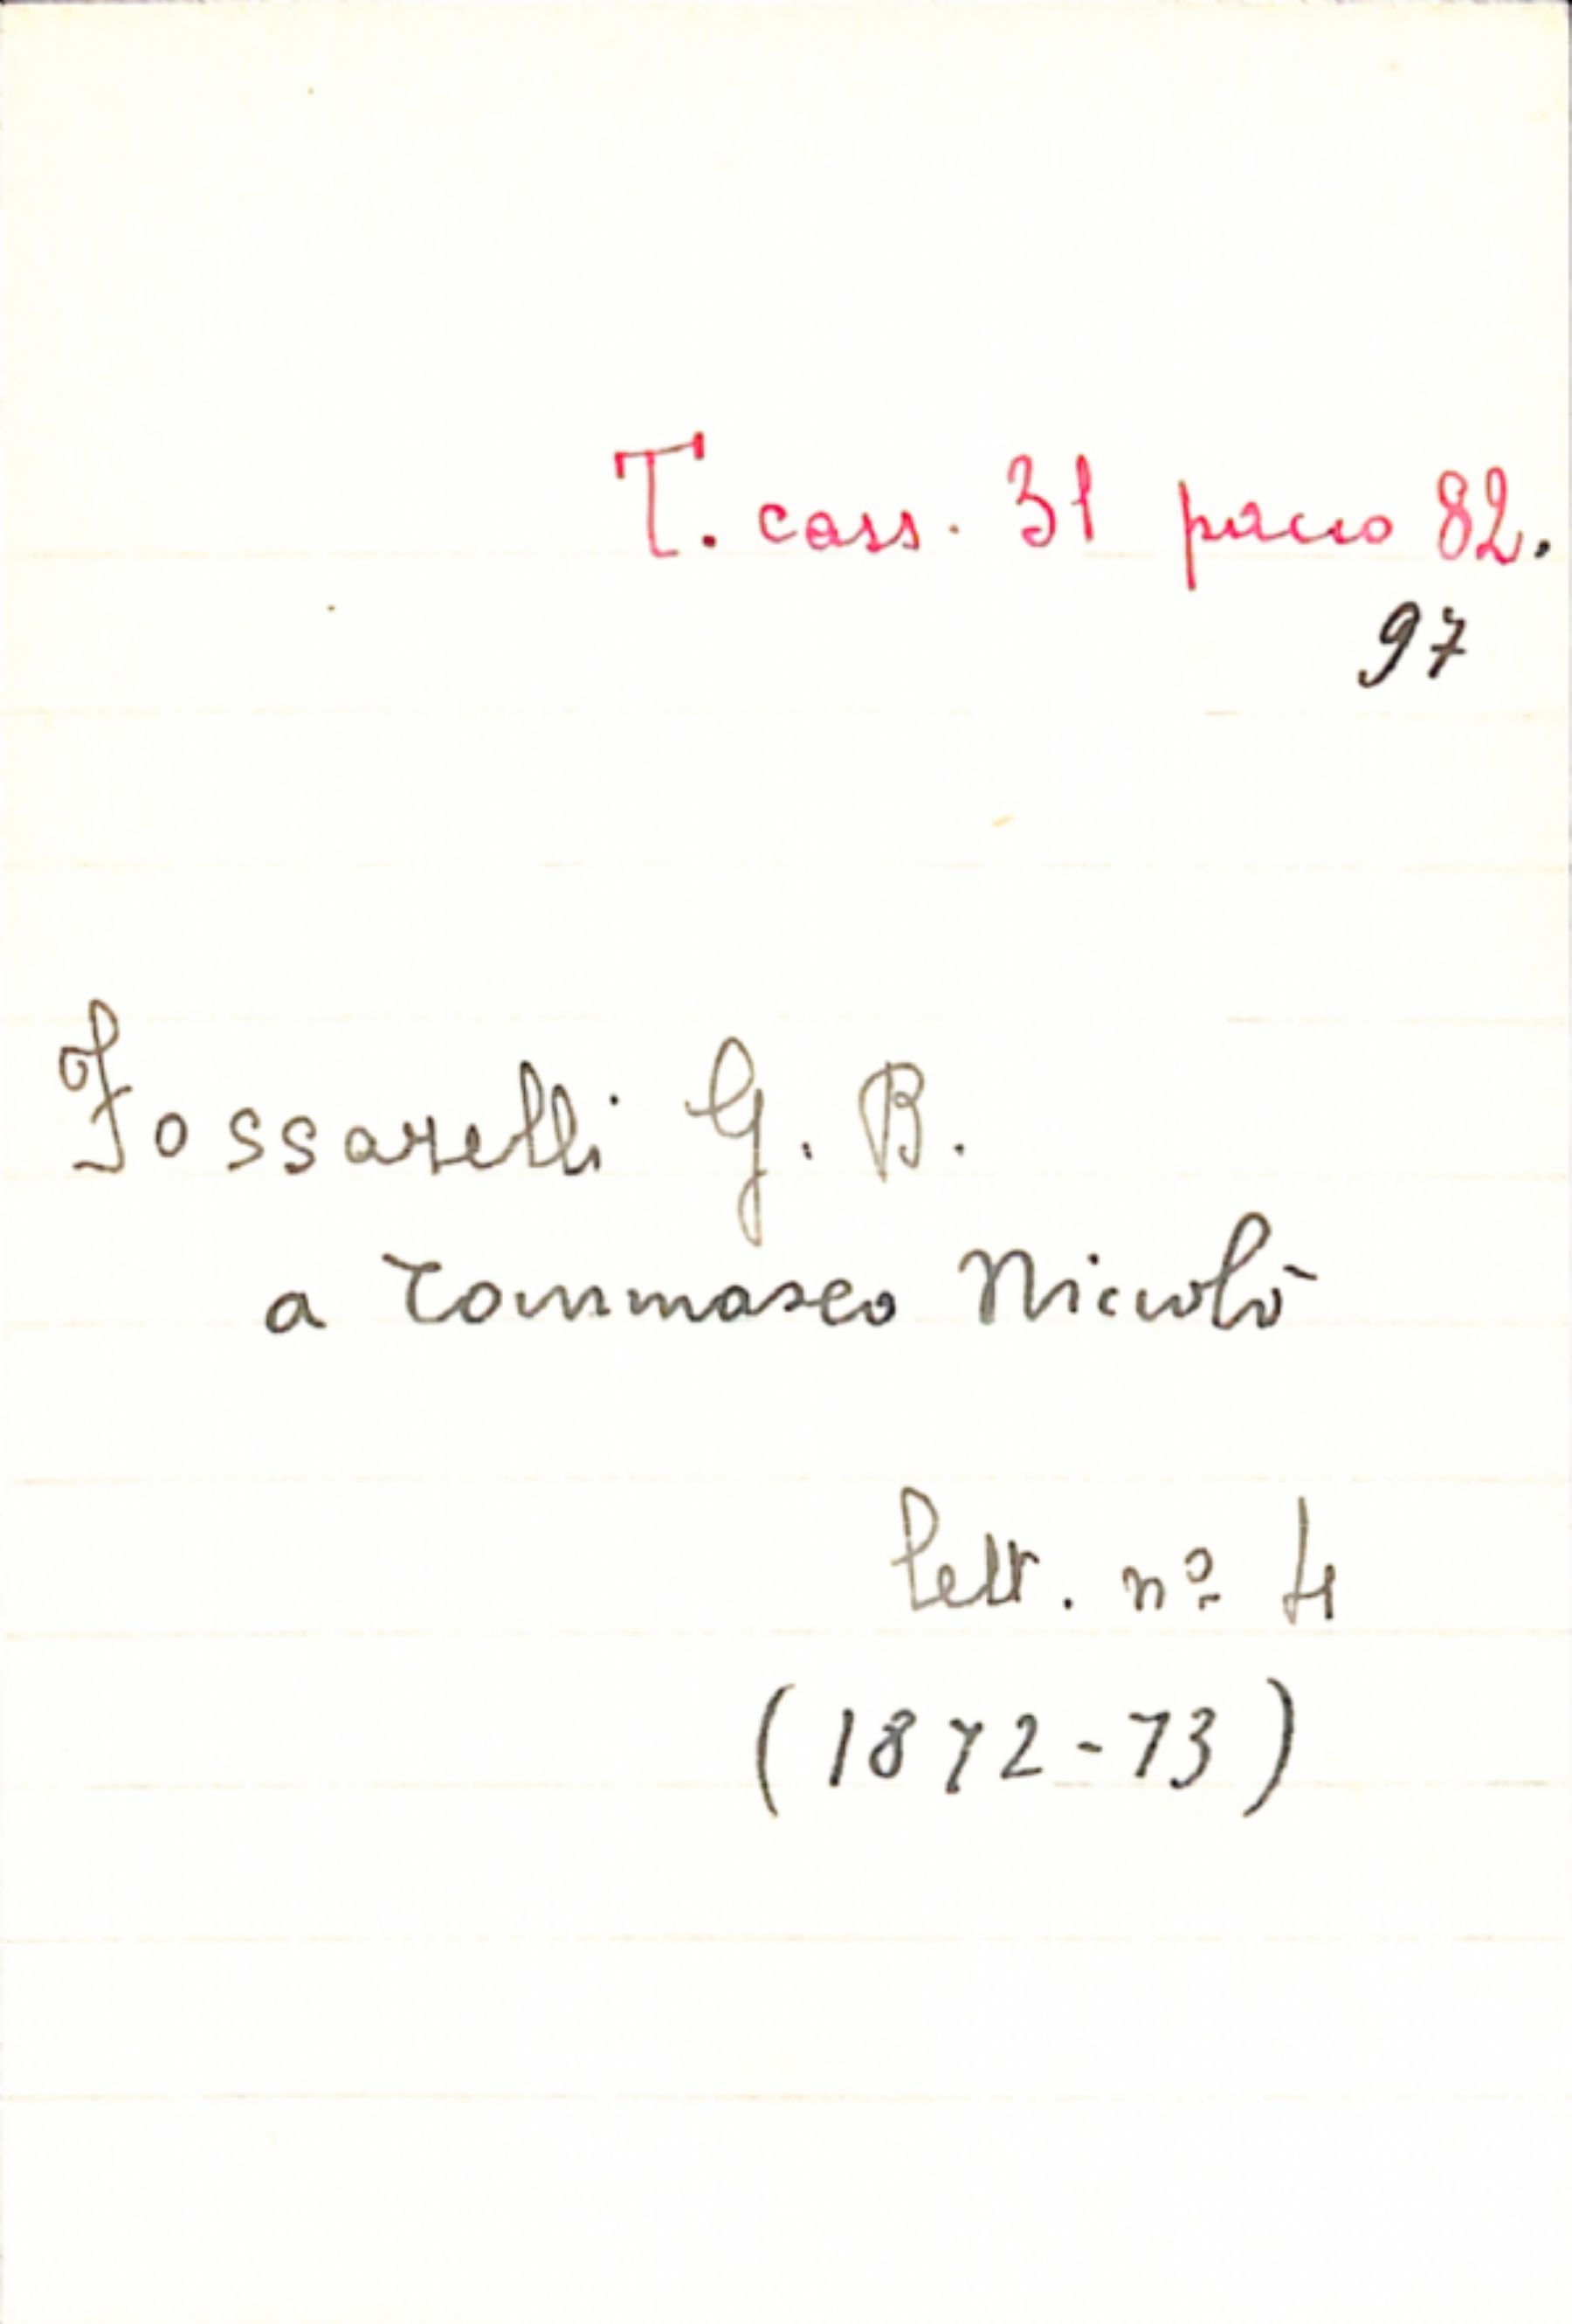 T. cass. 31 pacco 82.
97
Fossarelli G. B.
a Tommaseo Niccolò
lett. nº 4
(1872-73)